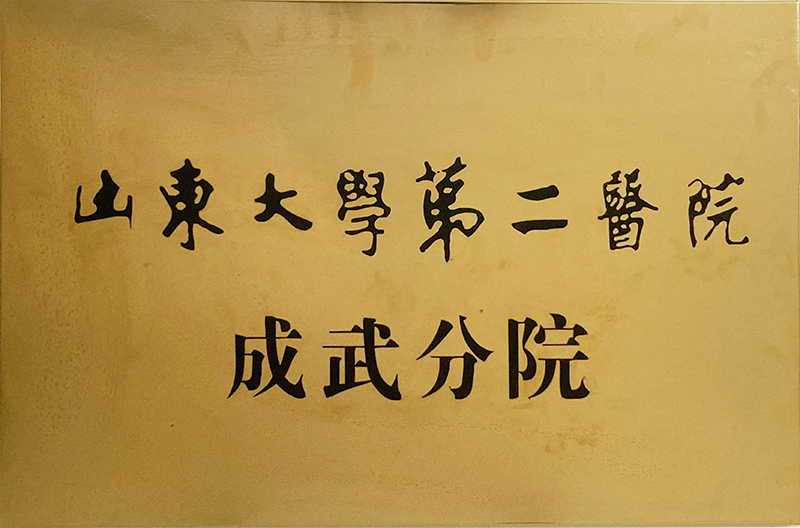 山東大學第二醫院
成武分院